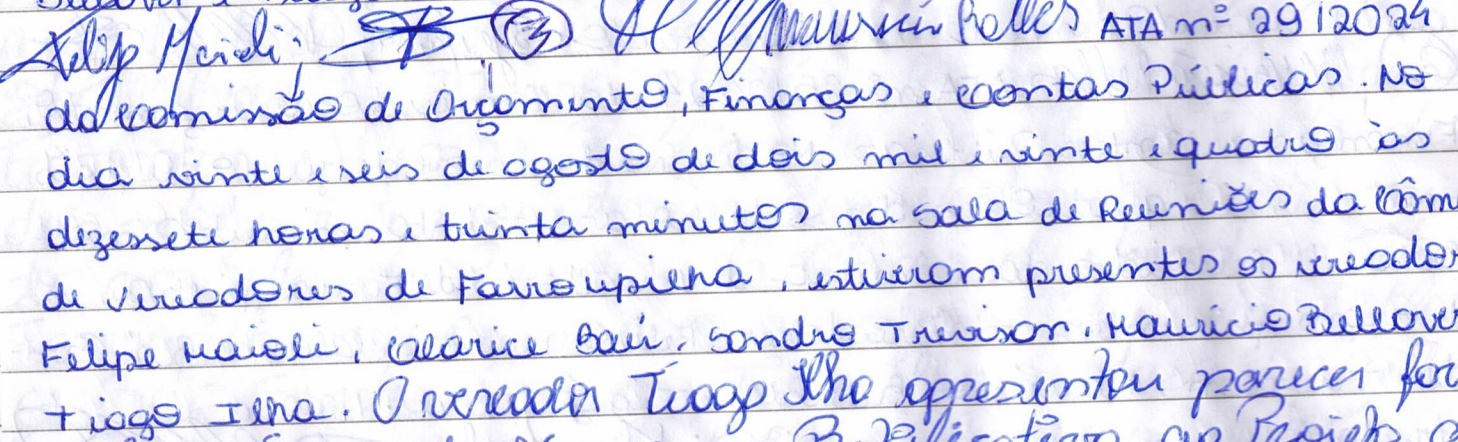 Felip Maioli; ATA nº 29/2024
da comissão de Orçamento, Finanças e contas Públicas. No
dia vinte e seis de agosto de dois mil e vinte e quatro às
dezessete horas e trinta minutos na Sala de Reuniões da Câm
de vereadores de Farroupilha, estiveram presentes os vereador
Felipe Maioli, Clarice Baú, Sandro Trevison, Maurício Bellaver
Tiago Ilha. O vereador Tiago Ilha apresentou parecer for
ao Projeto